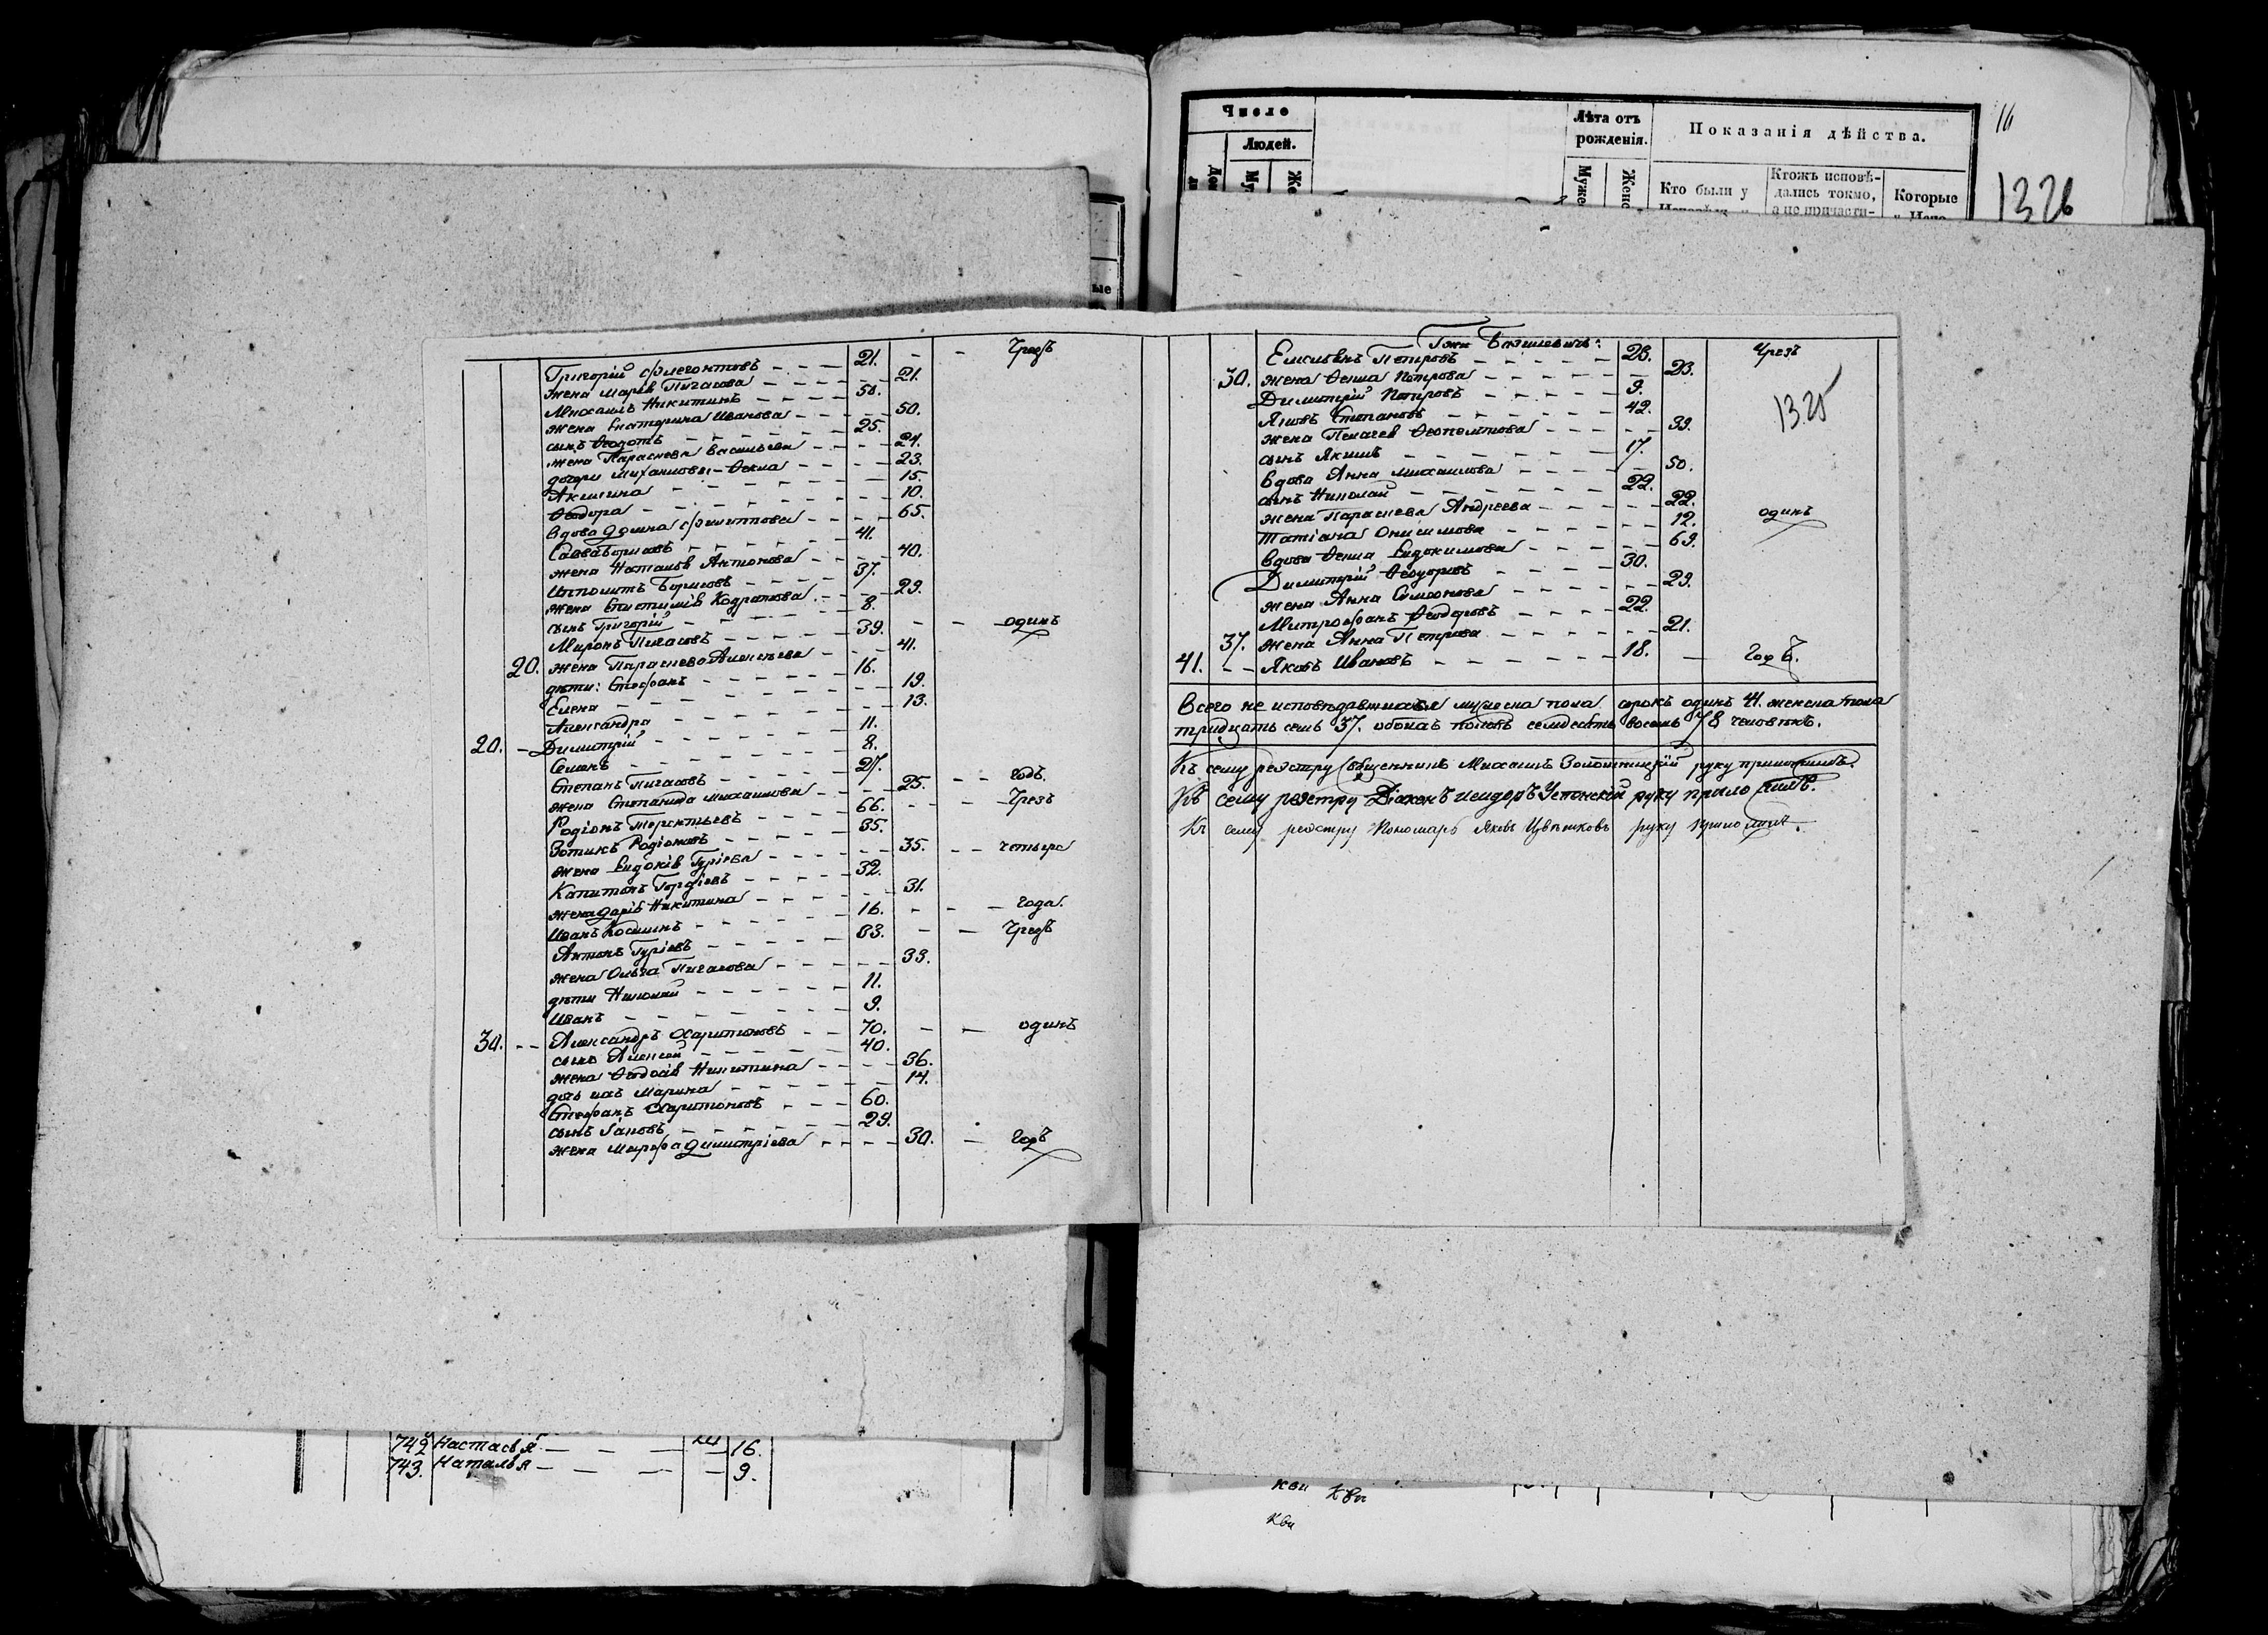 Число
Людей.
Лѣта отъ рожденія.
Показанія дѣйства.
Кто были у
Ктожъ исповѣ-
дались токмо,
а не причасти-
Которые
16
1326
ые
Григорій Флегонтовъ - - - 21. - - Чрезъ
жена Марѳа Пигасова - - - 21.
Михаилъ Никитинъ - - - 50.
жена Екатерина Иванова - - - 50.
сынъ Ѳеодотъ - - - 25.
жена Параскева Васильева - - - 24.
дочери Михаиловы - Ѳекла - - - 23.
Акилина - - - 15.
Ѳеодора - - - 10.
вдова Домна Филиппова - - - 65.
Савва Борисовъ - - - 41.
жена Наталья Антонова - - - 40.
Ипполитъ Борисовъ - - - 37.
жена Епистимія Кодратова - - - 29.
сынъ Григорій - - - 8.
Миронъ Пигасовъ - - - 39. - - одинъ
20. жена Параскева Алексѣева - - - 41.
дѣти: Стефанъ - - - 16.
Елена - - - 19.
Александра - - - 13.
20. - Димитрій - - - 11.
Семенъ - - - 8.
Степанъ Пигасовъ - - - 27. - - годъ.
жена Степанида Михаилова - - - 25.
Родіонъ Терентьевъ - - - 66. - - Чрезъ
Зотикъ Родіоновъ - - - 35.
жена Евдокія Гуріева - - - 35. - - четыре
Капитонъ Гордіевъ - - - 32.
жена Дарія Никитина - - - 31.
Иванъ Косминъ - - - 16. - - года.
Антонъ Гуріевъ - - - 33. - - Чрезъ
жена Ольга Пигасова - - - 33.
дѣти Николай - - - 11.
Иванъ - - - 9.
30. - - Александръ Харитоновъ - - 70. - - одинъ
сынъ Алексей - - - 40.
жена Ѳеодосія Никитина - - - 36.
дочь ихъ Марина - - - 14.
Стефанъ Харитоновъ - - - 60.
сынъ Іаковъ - - - 29.
жена Марфа Димитріева - - - 30. - годъ
742 Настасья - - - 16.
743. Наталья - - - 9.
Емельянъ Петровъ - - - 23. Чрезъ
30. жена Ѳекла Петрова - - - 23.
Димитрій Петровъ - - - 9.
1325
Яковъ Степановъ - - - 42.
жена Пелагея - - - 39.
сынъ - - - 17.
вдова Анна Михаилова - - - 50.
сынъ Николай - - - 22.
жена Параскева Андреева - - - 22. одинъ
Татіана Онисимова - - - 12.
вдова Ѳекла Евдокимова - - - 69.
Димитрій Ѳеодоровъ - - - 30.
жена Анна Симеонова - - - 29.
Митрофанъ Ѳеодоровъ - - - 22.
37. жена Анна Петрова - - - 21.
41. - - Яковъ Ивановъ - - - 18. - годъ.
Всего не исповѣдавшихся мужеска пола сорокъ одинъ 41. женска пола
тридцать семь 37. обоихъ половъ семдесятъ восемь 78 человѣкъ.
Къ сему реэстру священникъ Михаилъ Золотницкій руку приложилъ.
Къ сему реэстру Діаконъ Исидоръ Успенскій руку приложилъ.
Къ сему реэстру Пономарь Яковъ Цвѣтковъ руку приложилъ.
Кви Кви
Кви